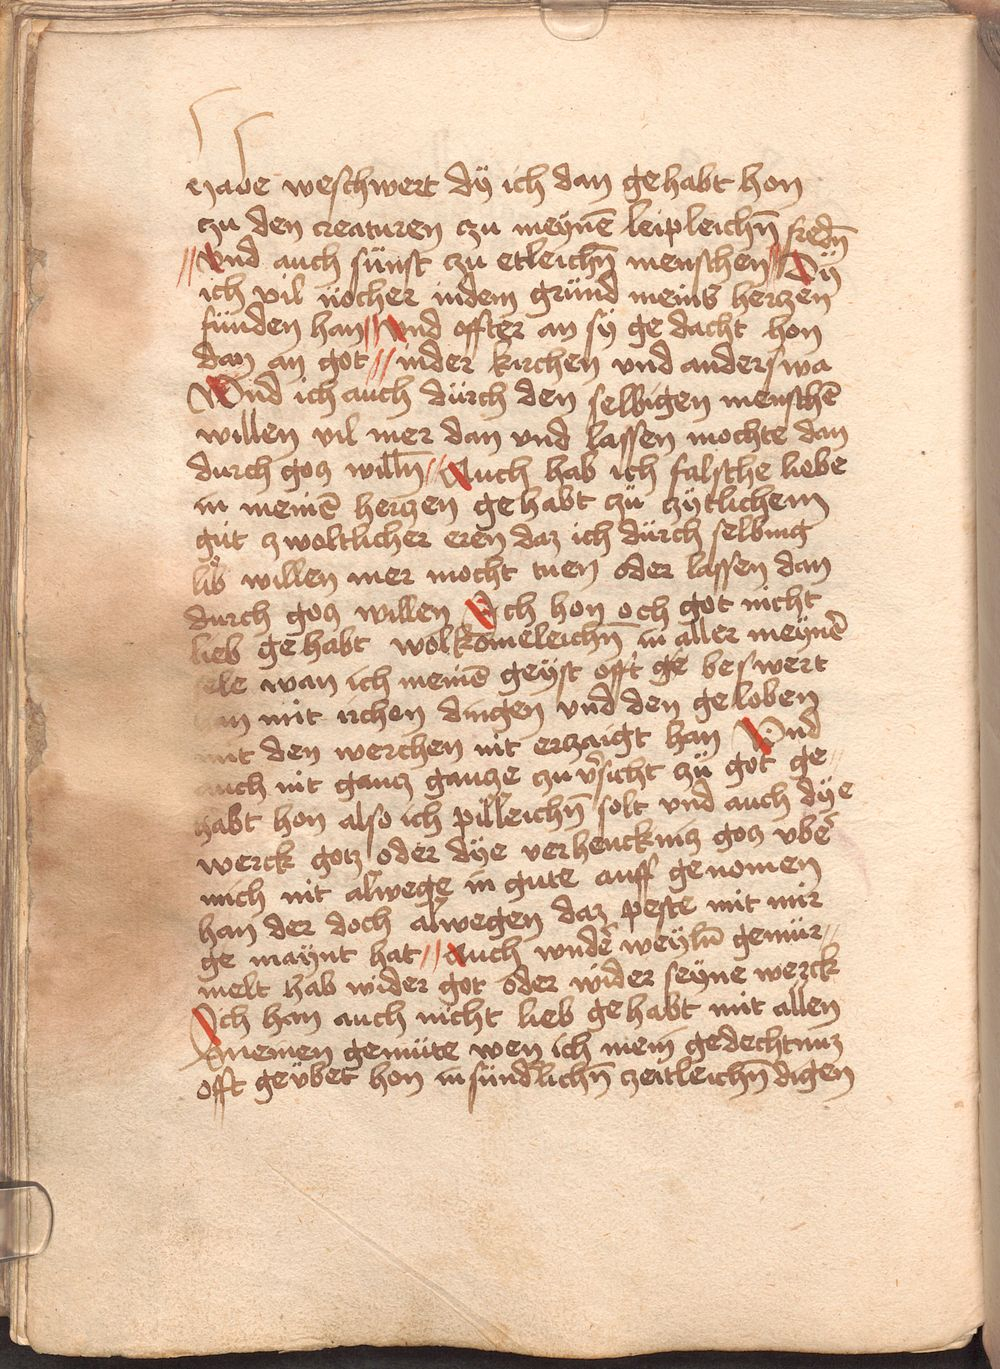 weschwert dÿ ich dan gehabt hon
czu den creaturen czu meynē leipleichn̄ fredn̄
// vnd auch sünst zu etleichn̄ menschen // Dÿ
ich vil nocher indem gründ meins herczen
fünden han // vnd offter an sÿ ge dacht hon
dan an got /// inder kirchen vnd anderswa
Vnd ich auch dürch den selbigen menschē
willen vil mer dan vnd lassen mochte dan
durch gocz willn̄ // Auch hab ich falsche liebe
in meinē herczen gehabt zü zÿtlichem
güt zwoltlicher eren daz ich dürch selbing
lib willen mer mocht tuen oder lassen dan
durch gocz willen Ich hon och got nicht
lieb gehabt wolkōmeleichn̄ in aller meynē
sele wan ich meinē geÿst offt ge beswert
han mit irchen dingen vnd den geloben
mit den werchen nit erczaigt han Vnd
auch nit gancz gancze czu v̄sicht zü got ge //
habt hon also ich pilleichn̄ solt vnd auch dÿe
werck gotz oder dÿe verhencknis gocz vbē
mich nit alwege in gute auff genomen
han der doch alwegen daz peste mit mir
ge maynt hat // Auch vndē weÿln̄ gemür //
melt hab wider got oder wider seÿne werck
Ich han auch nicht lieb gehabt mit allen
meinen gemüte wen ich mein gedechtnuz
offt geübet hon in sündlichn̄ zeitleichn̄ digen